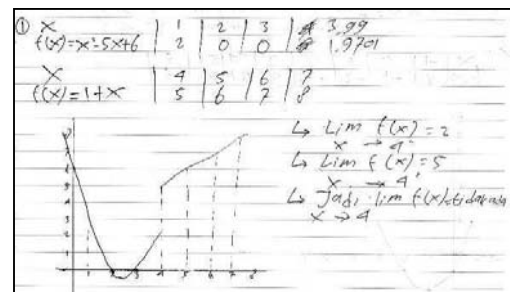 ① x | 1 | 2 | 3 | 3,99
f(x)=x²-5x+6 | 2 | 0 | 0 | 1,9701
x | 4 | 5 | 6 | 7
f(x)=1+x | 5 | 6 | 7 | 8
↳ Lim f(x) = 2
x → 4⁻
↳ Lim f(x) = 5
x → 4⁺
↳ Jadi lim f(x) tidak ada
x → 4
1 2 3 4 5 6 7 8